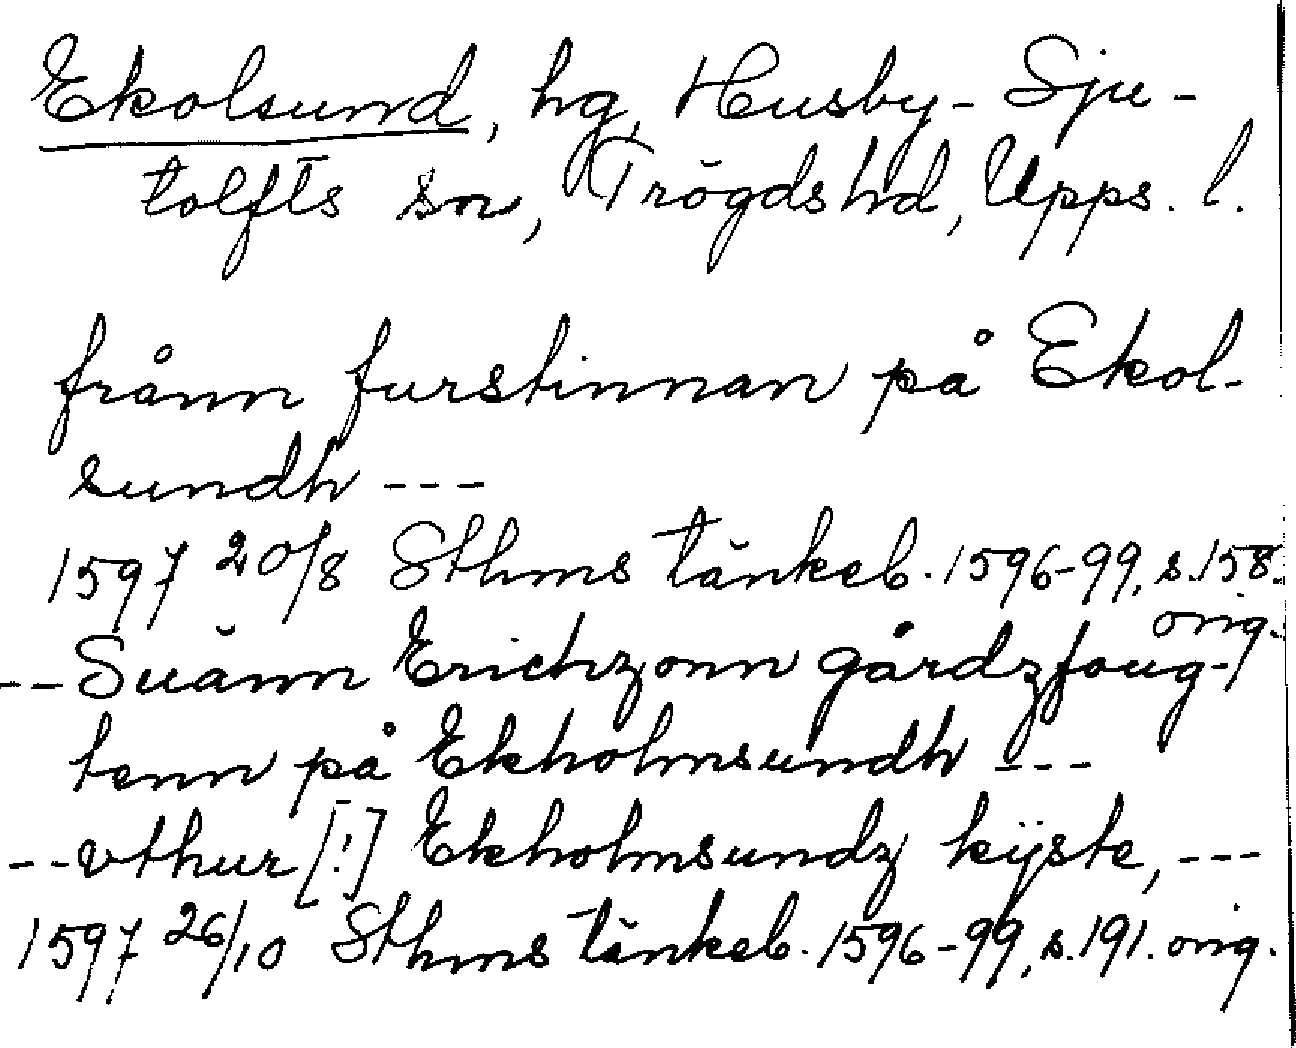 Ekolsund, hg, Husby-Sju-
tolfts sn, Trögds hd, Upps. l.
frånn furstinnan på Ekol-
sundh ---
1597 20/8 Sthms tänkeb. 1596-99, s. 158.
orig.
--Suänn Erichzonn gårdzfoug-
tenn på Ekholmsundh ---
--vthur [!] Ekholmsundz kÿste, ---
1597 26/10 Sthms tänkeb. 1596-99, s. 191. orig.